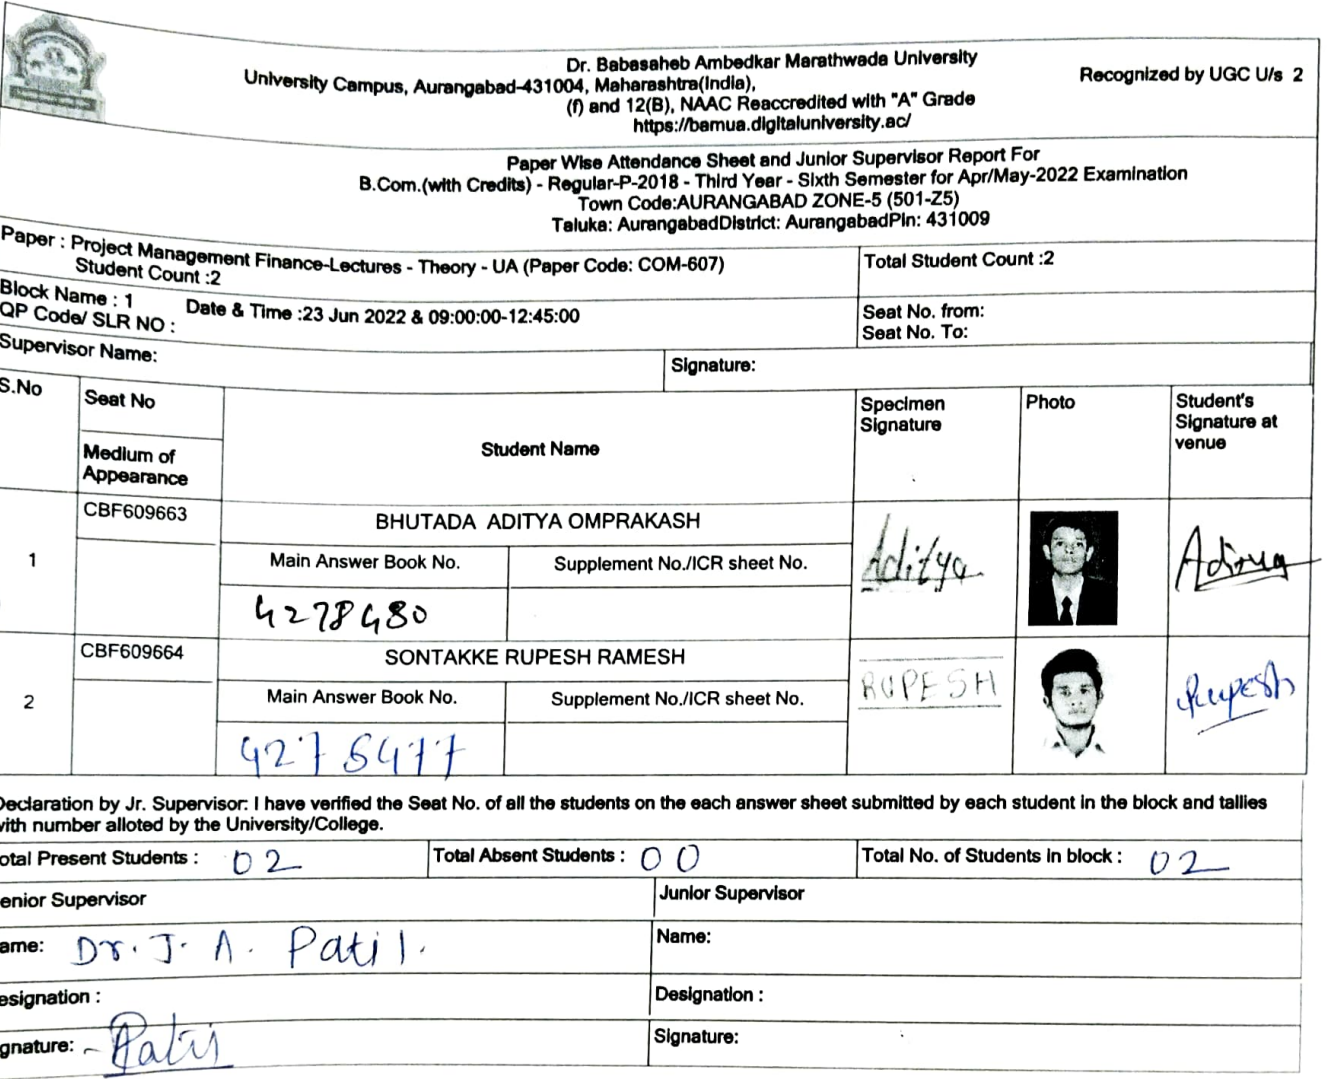 Dr. Babasaheb Ambedkar Marathwada University
University Campus, Aurangabad-431004, Maharashtra(India),
Recognized by UGC U/s 2
(f) and 12(B), NAAC Reaccredited with "A" Grade
https://bamua.digitaluniversity.ac/
Paper Wise Attendance Sheet and Junior Supervisor Report For
B.Com.(with Credits) - Regular-P-2018 - Third Year - Sixth Semester for Apr/May-2022 Examination
Town Code:AURANGABAD ZONE-5 (501-Z5)
Taluka: AurangabadDistrict: AurangabadPin: 431009
Paper : Project Management Finance-Lectures - Theory - UA (Paper Code: COM-607)
Student Count :2
Total Student Count :2
Block Name : 1
Date & Time :23 Jun 2022 & 09:00:00-12:45:00
QP Code/ SLR NO :
Seat No. from:
Seat No. To:
Supervisor Name:
Signature:
S.No
Seat No
Medium of
Appearance
Student Name
Specimen
Signature
Photo
Student's
Signature at
venue
1
CBF609663
BHUTADA ADITYA OMPRAKASH
Main Answer Book No.
Supplement No./ICR sheet No.
4278480
Aditya
2
CBF609664
SONTAKKE RUPESH RAMESH
Main Answer Book No.
Supplement No./ICR sheet No.
RUPESH
Rupesh
Declaration by Jr. Supervisor: I have verified the Seat No. of all the students on the each answer sheet submitted by each student in the block and tallies
with number alloted by the University/College.
otal Present Students : 02
Total Absent Students : 00
Total No. of Students in block : 02
enior Supervisor
Junior Supervisor
ame: Dr. J. A. Patil.
Name:
esignation :
Designation :
gnature: Patil
Signature: